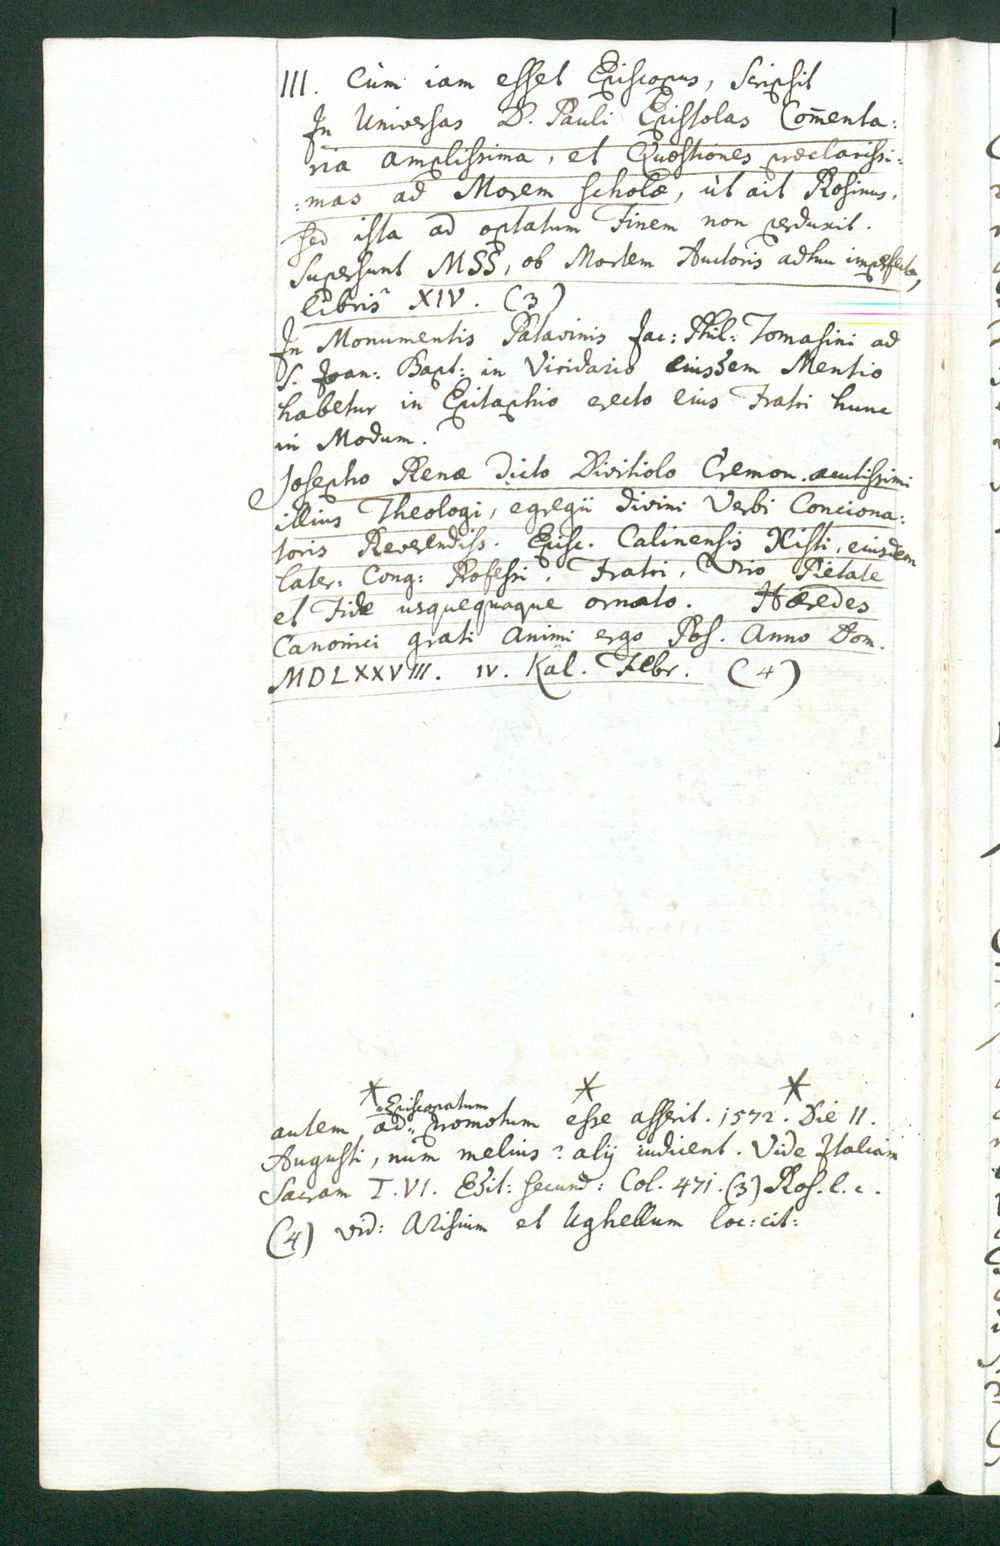 III. Cùm iam esset Episcopus, scripsit
In Universas D. Pauli Epistolas Com̄enta:
ria amplissima, et Quæstiones præclarissi:
:mas ad Morem scholæ, ùt ait Rosinus,
sed ista ad optatum Finem non perduxit.
supersunt MSS, ob Mortem Auctoris adhuc imperfecta,
Libris XIV. (3)
In Monumentis Patavinis Jac: Phil: Tomasini ad
S. Joan: Bapt: in Viridario eiusdem Mentio
habetur in Epitaphio erecto eius Fratri hunc
in Modum.
Josepho Renæ dicto Divitiolo Cremon. acutissimi
illius Theologi, egregii divini Verbi Conciona:
toris Reverendiss. Episc. Calinensis Xisti, eiusdem
later: Cong: Professi, Fratri, Viro Pietate
et Fide usquequaque ornato. Hæredes
Canonici grati Animi ergo Pos. Anno Dom.
MDLXXVIII. IV. Kal. Febr. (4)
* * *
"Episcopatum
autem ad" promotum esse asserit. 1572. Die 11.
Augusti, num melius? alij iudicent. Vide Italiam
Sacram T. VI. Edit: secund: Col. 471. (3) Ros. l. c.
(4) vid: Arisium et Ughellum loc: cit: